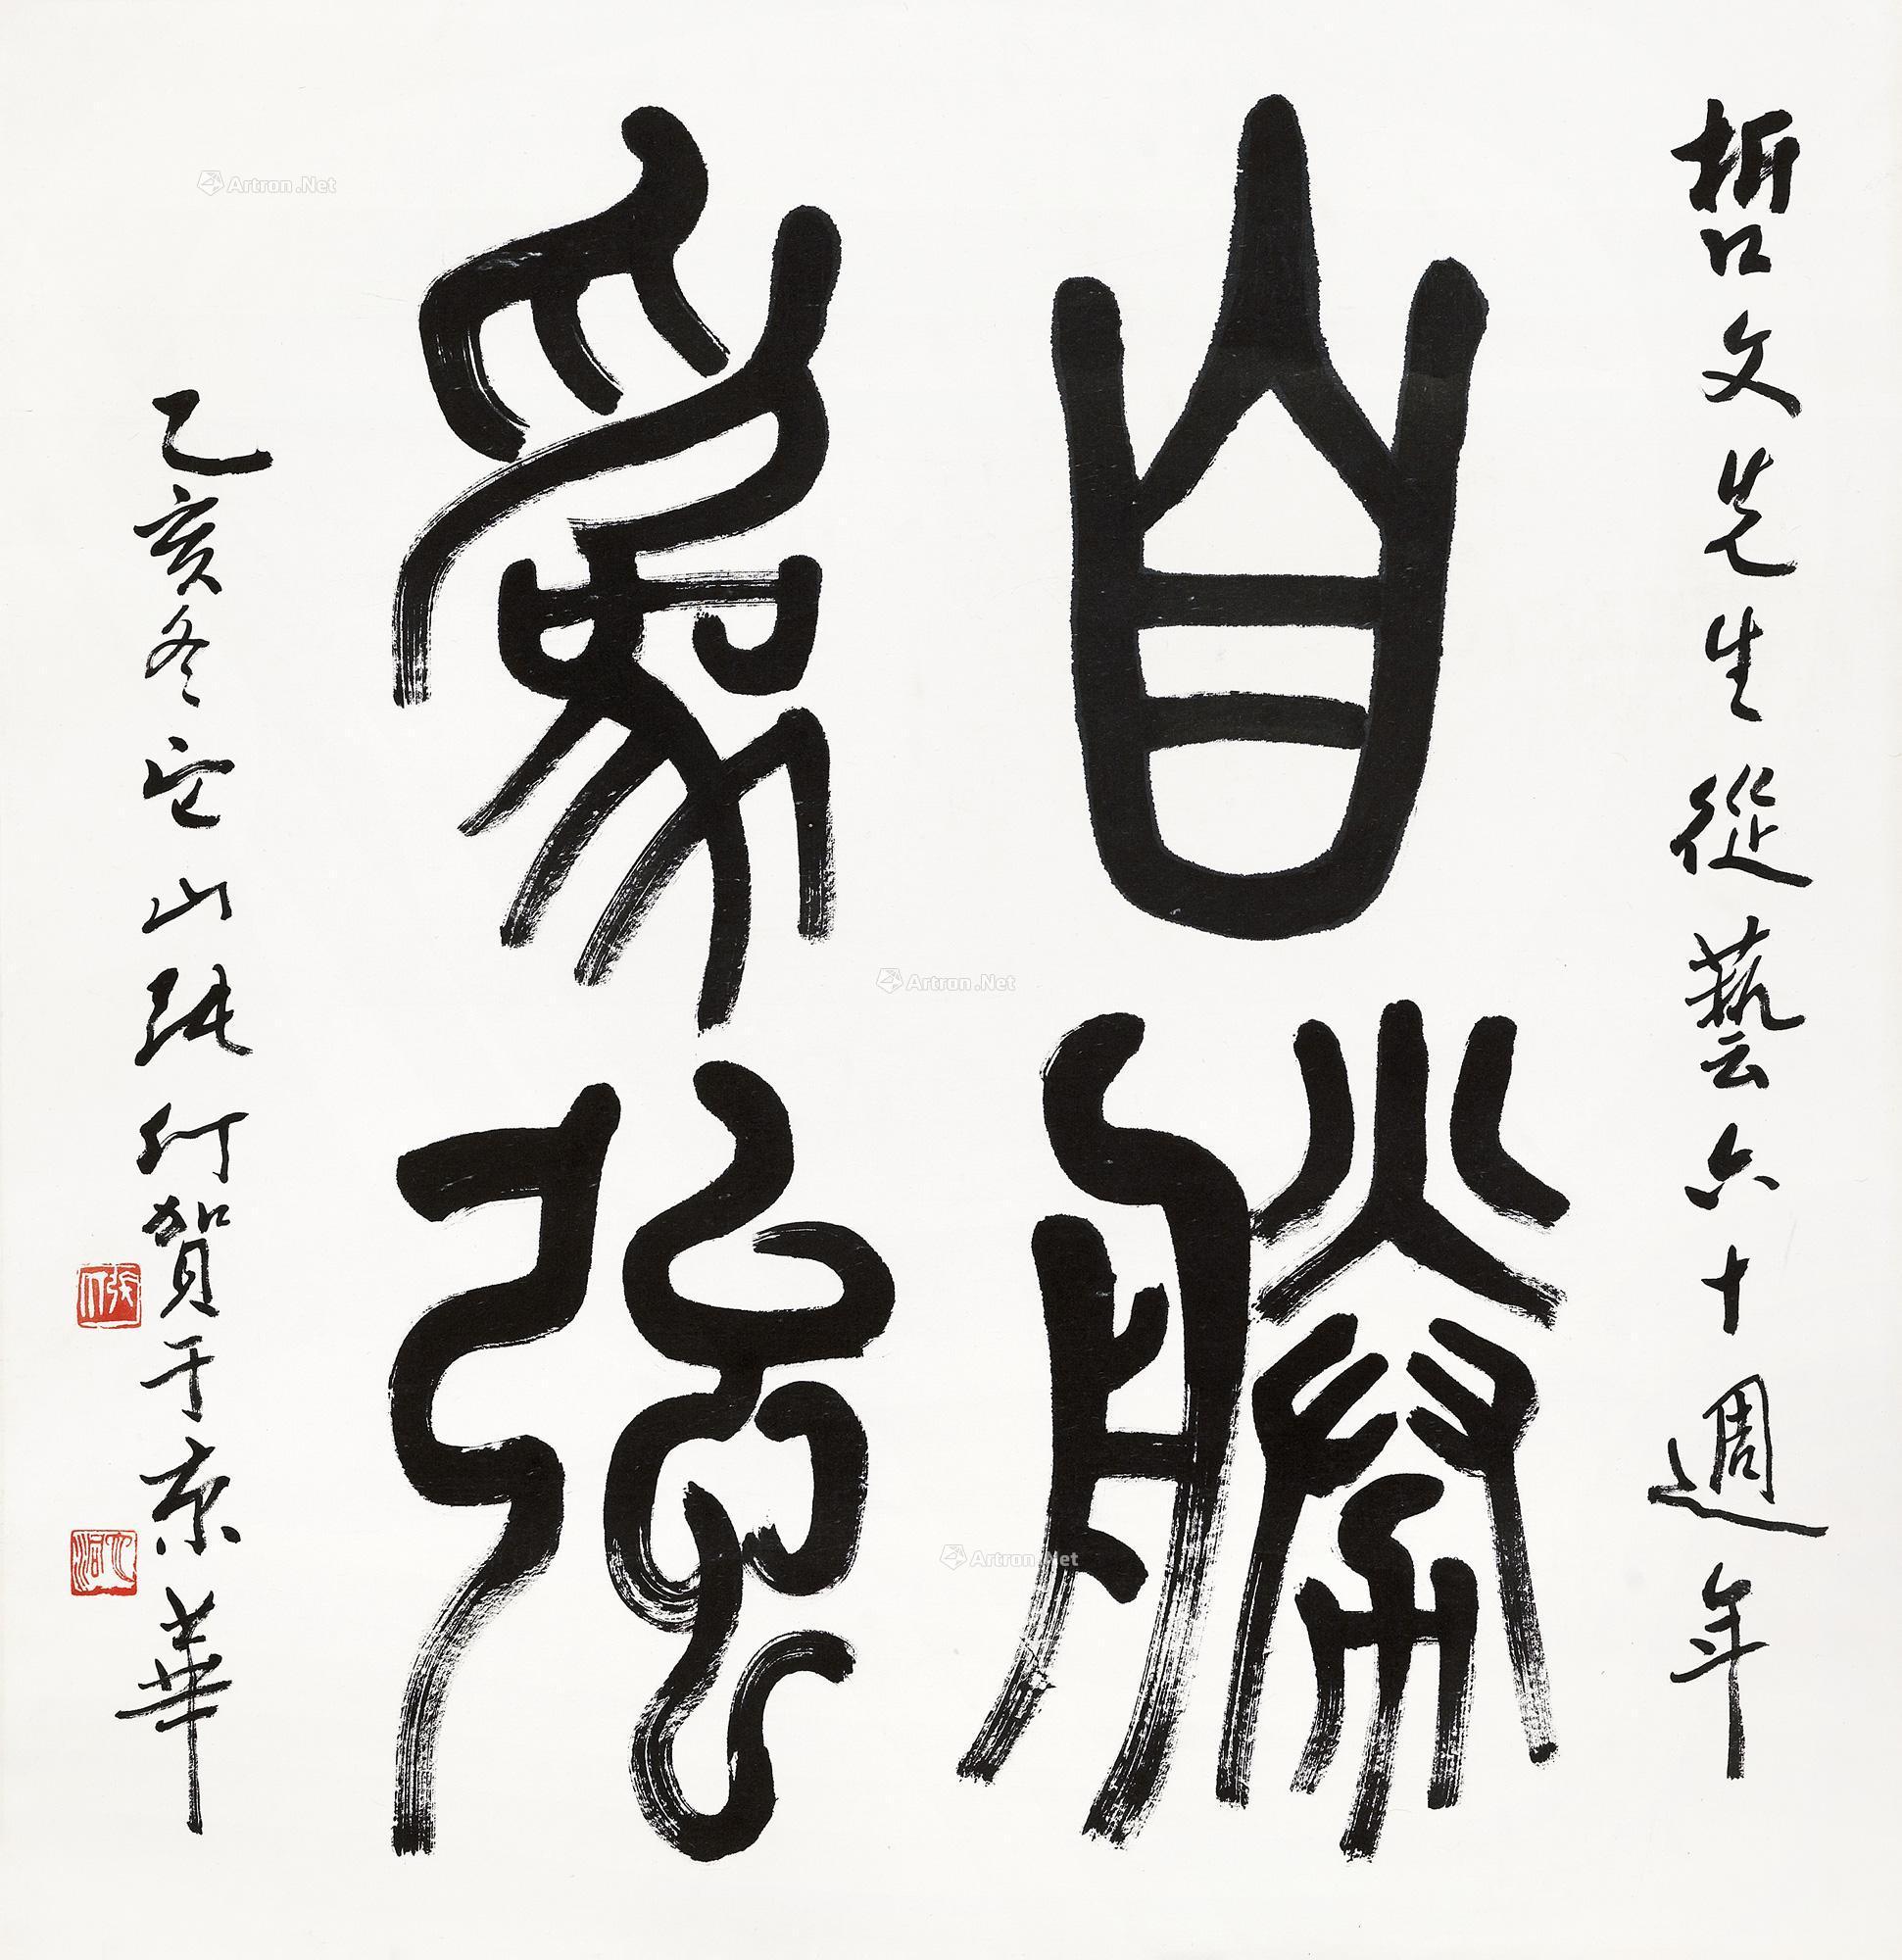 哲文先生從藝六十週年
自勝
爲強
乙亥冬它山張仃賀于京華
張仃
Artron.Net
Artron.Net
Artron.Net